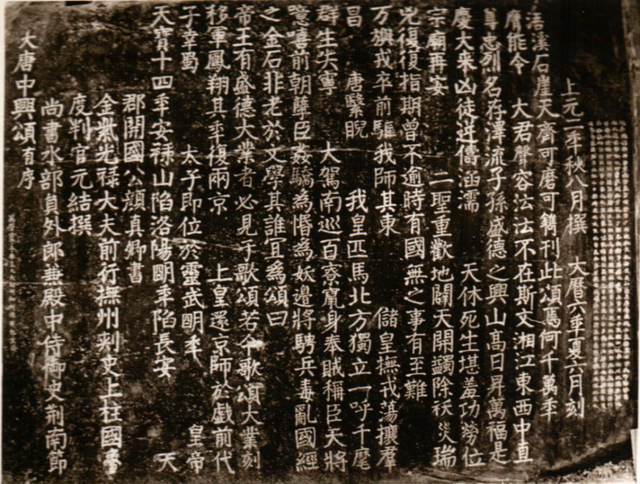 大唐中興頌有序
尚書水部員外郎兼殿中侍御史荊南節
度判官元結撰
金紫光祿大夫前行撫州刺史上柱國魯
郡開國公顏真卿書
天寶十四年安祿山陷洛陽明年陷長安 天
子幸蜀 太子即位於靈武明年 皇帝
移軍鳳翔其年復兩京 上皇還京師於戲前代
帝王有盛德大業者必見于歌頌若今歌頌大業刻
之金石非老於文學其誰宜為頌曰
噫嘻前朝孽臣姦驕為惛為妖邊將騁兵毒亂國經
群生失寧 大駕南巡百寮竄身奉賊稱臣天將
昌 唐繄睨 我皇匹馬北方獨立一呼千麾
万旟戎卒前驅我師其東 儲皇撫戎蕩攘群
兇復復指期曾不逾時有國無之事有至難
宗廟再安 二聖重歡地闢天開蠲除祅災瑞
慶大來凶徒逆儔涵濡 天休死生堪羞功勞位
尊忠烈名存澤流子孫盛德之興山高日昇萬福是
膺能令 大君聲容沄沄不在斯文湘江東西中直
浯溪石崖天齊可磨可鐫刊此頌焉何千萬年
上元二年秋八月撰 大曆六年夏六月刻